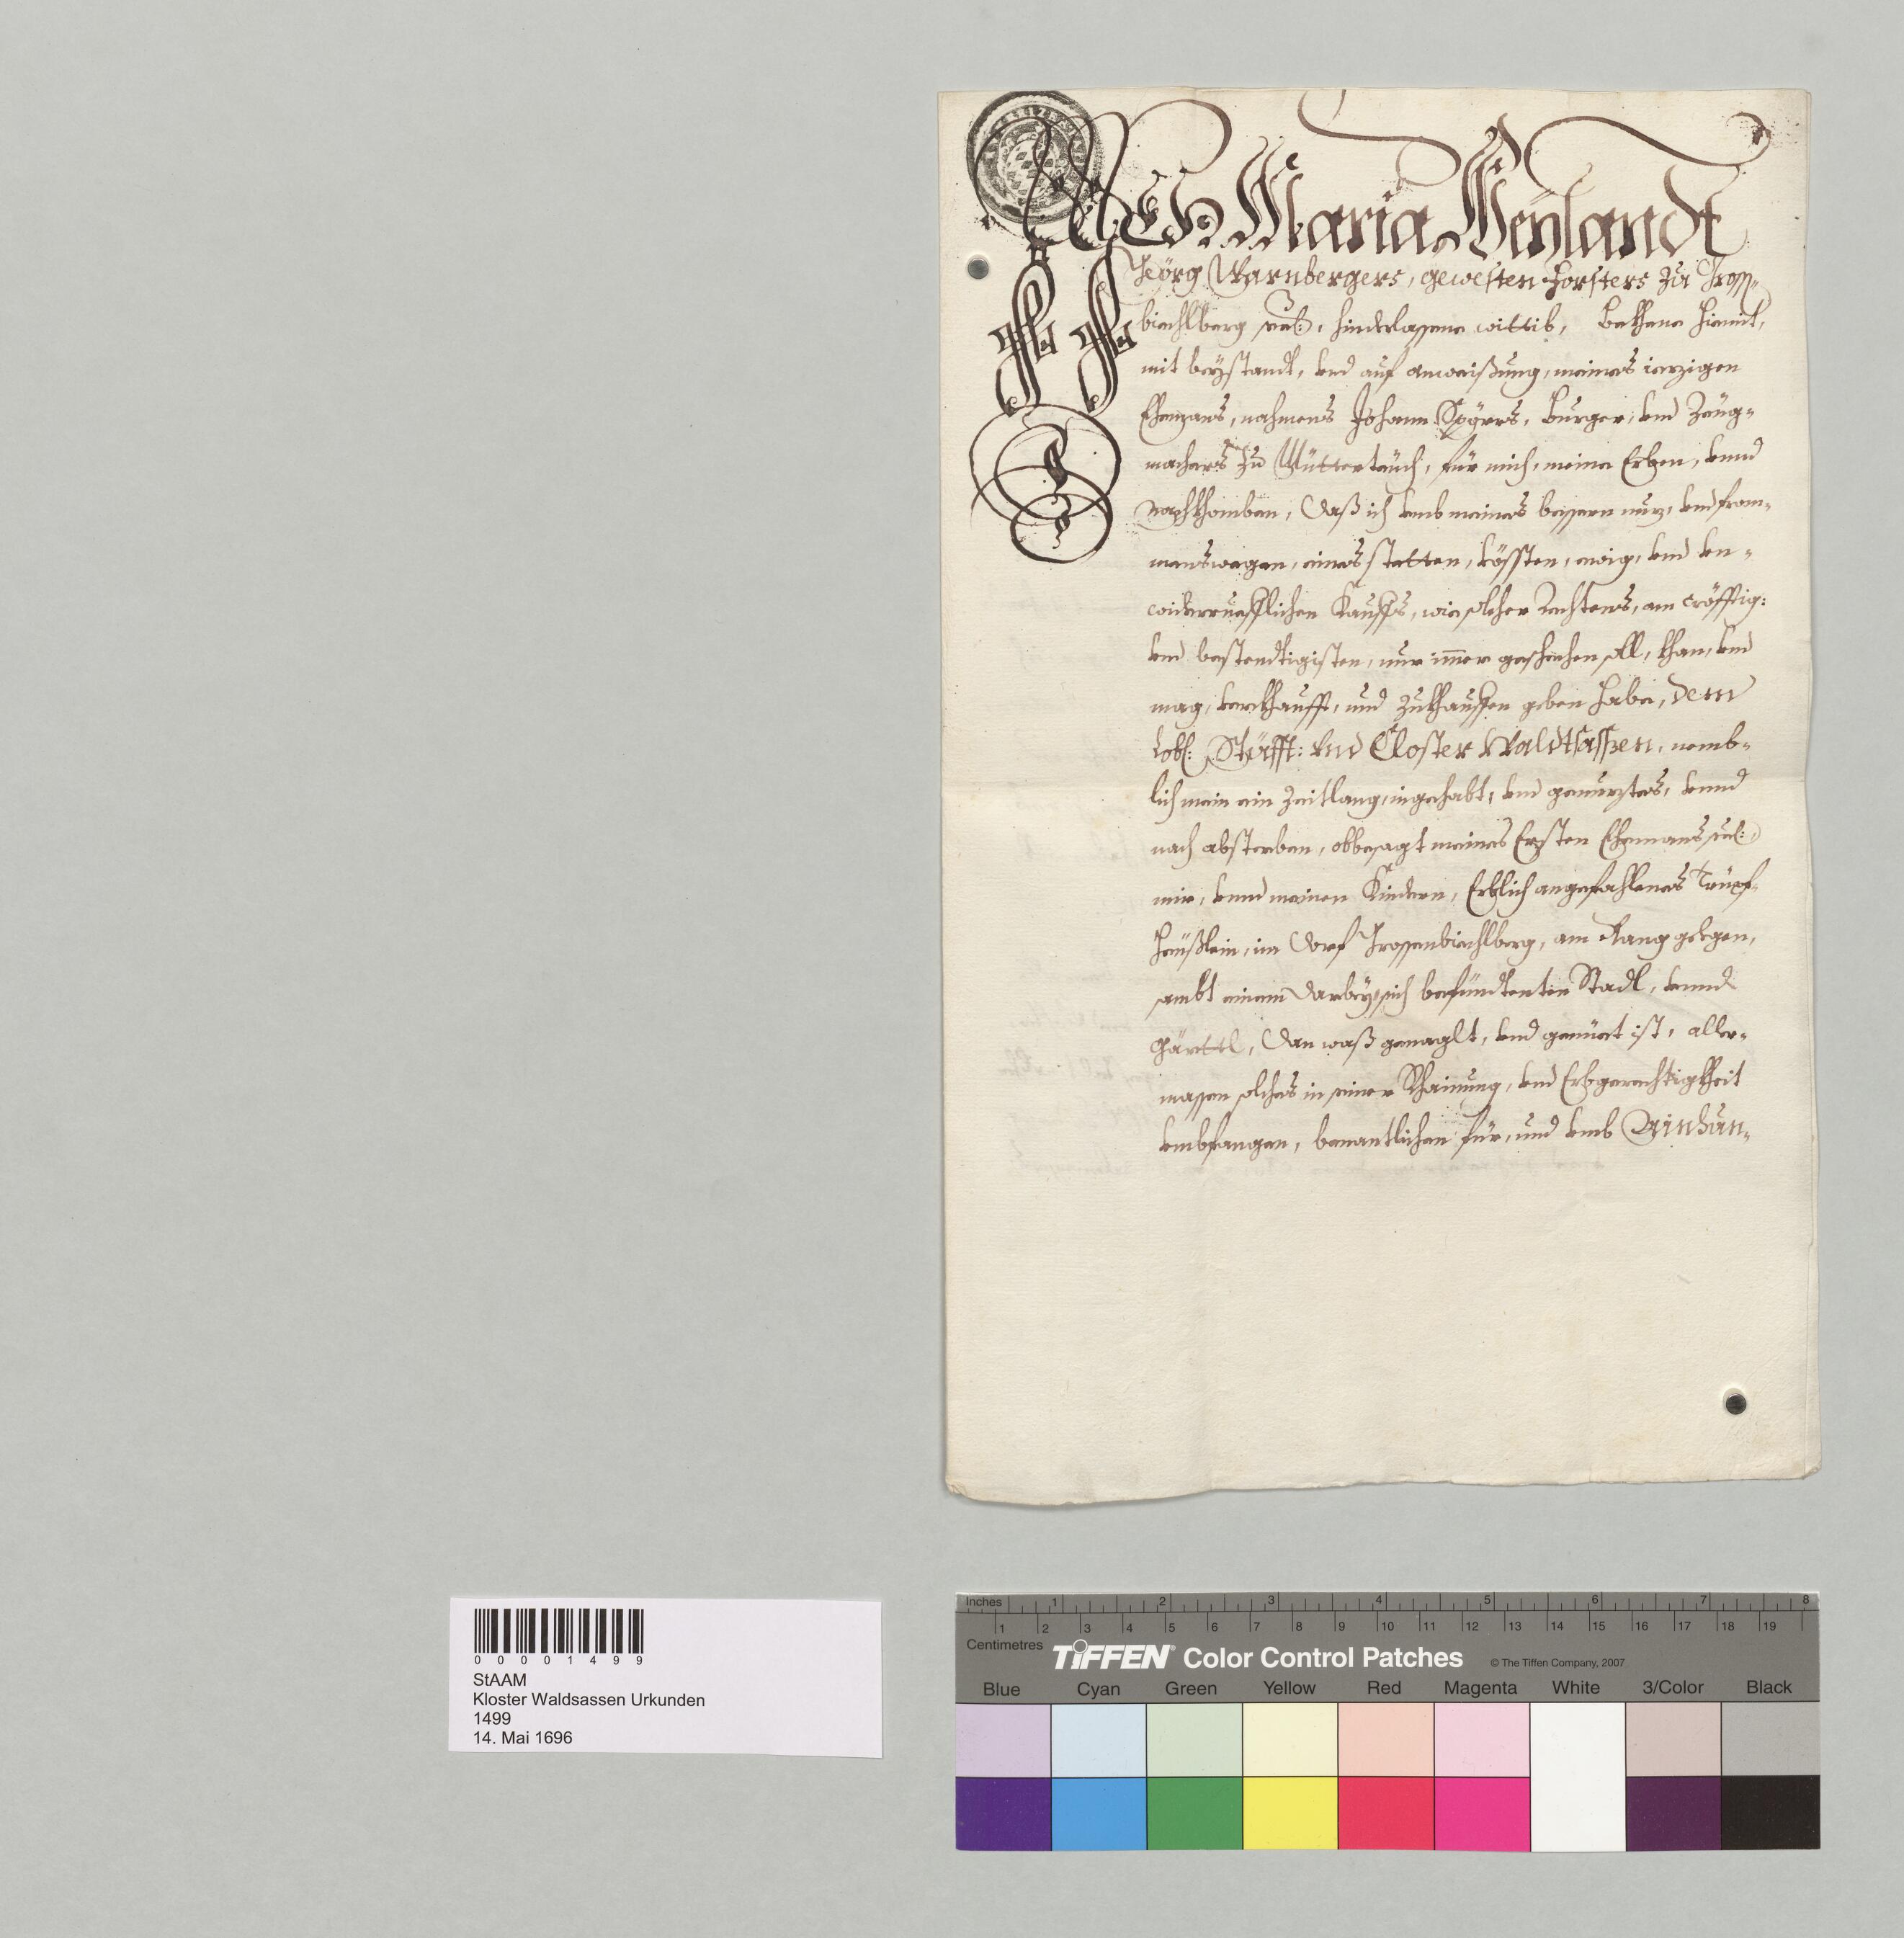 Ich Maria Weÿlandt
Geörg Warnbergers, gewesten Forsters zu Gross-
biechlberg seel: hinderlassene wittib, Bekhene hiemit,
mit beÿstandt, vnd auf anweißung, meines iezigen
Ehemans, nahmens Johann Spörrs, Burger, vnd Zeug-
machers zu Mitterteüch, für mich, meine Erben, vnnd
nachkhomben, Daß ich vmb meines bessern nuz, vnd from-
menswegen, eines stetten, vössten, ewig, vnd vn-
widerruefflichen Kauffs, wie solcher Rechtens, am cröfftig:
vnd bestendtigisten, nur imer geschehen soll, khan, vnd
mag, verkhaufft, und zukhauffen geben habe, dem
Löbl: Stüfft: vnd Closter Waldtsassen, nemb-
lich mein ein Zeitlang, ingehabt, vnd genuztes, vnnd
nach absterben, obbesagt meines Ersten Ehemans seel:
mir, vnnd meinen Kindern, Erblich angefahlenes Tripf-
heüßlein, im Dorf Grossenbiechlberg, am Rang gelegen,
sambt einem darbeÿ sich befündtenten Stadl, vnnd
Gärttl, Den waß genaglt, vnd genüet ist, aller-
massen solches in seiner Rhainung, vnd Erbgerechtigkheit
vmbfangen, benantlichen für, und vmb Ainhun-
0 0 0 0 1 4 9 9
StAAM
Kloster Waldsassen Urkunden
1499
14. Mai 1696
Inches 1 2 3 4 5 6 7 8
1 2 3 4 5 6 7 8 9 10 11 12 13 14 15 16 17 18 19
Centimetres
TIFFEN® Color Control Patches © The Tiffen Company, 2007
Blue Cyan Green Yellow Red Magenta White 3/Color Black